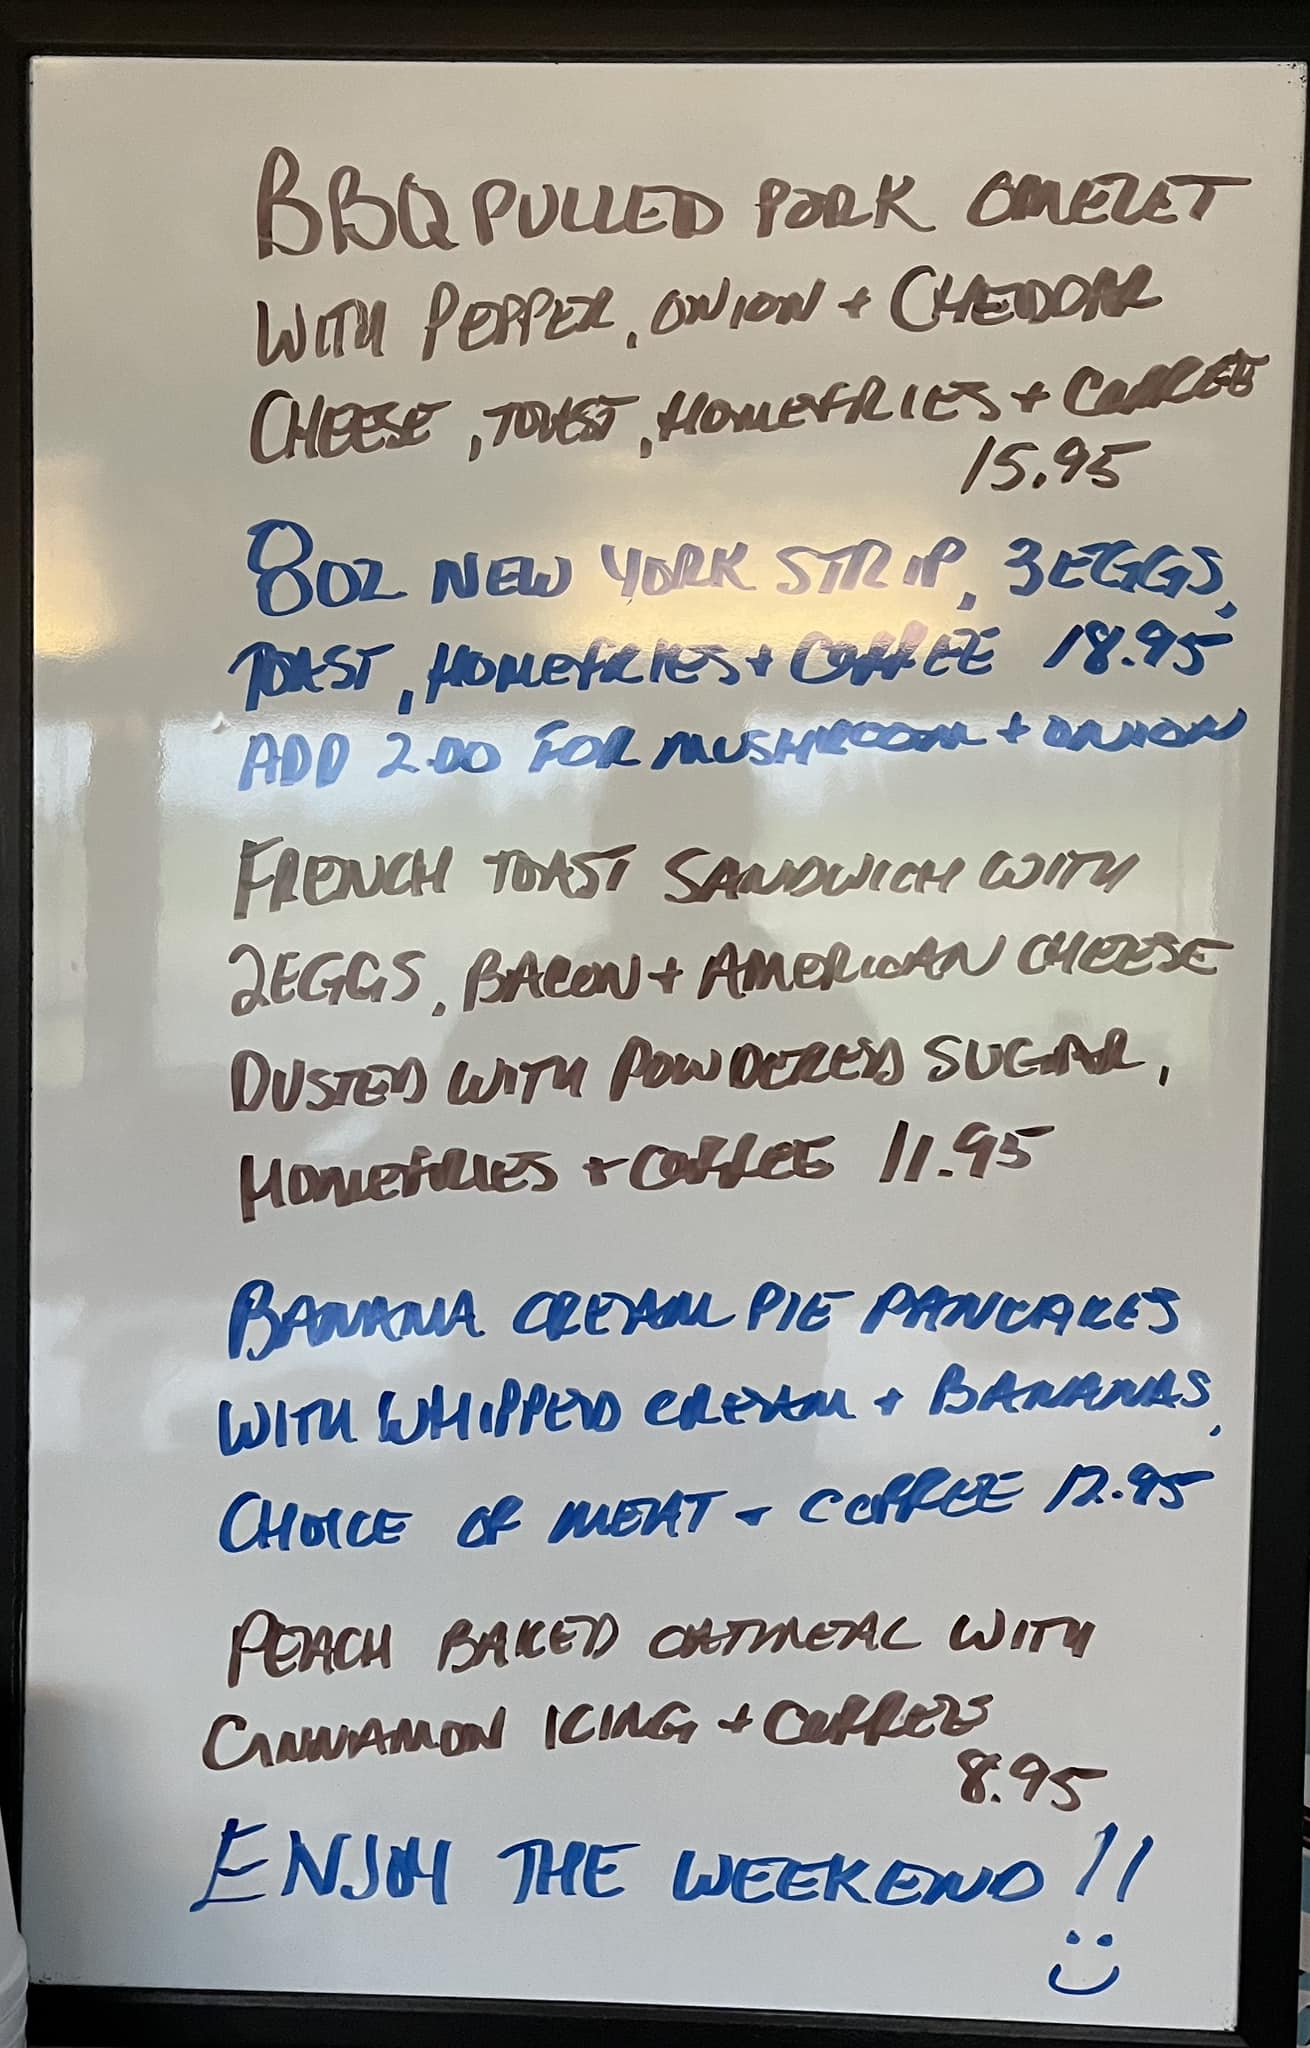 BBQ PULLED PORK OMELET
WITH PEPPER, ONION + CHEDDAR
CHEESE, TOAST, HOMEFRIES + COFFEE
15.95
8OZ NEW YORK STRIP, 3 EGGS,
TOAST, HOMEFRIES + COFFEE 18.95
ADD 2.00 FOR MUSHROOM + ONION
FRENCH TOAST SANDWICH WITH
2 EGGS, BACON + AMERICAN CHEESE
DUSTED WITH POWDERED SUGAR,
HOMEFRIES + COFFEE 11.95
BANANA CREAM PIE PANCAKES
WITH WHIPPED CREAM + BANANAS,
CHOICE OF MEAT + COFFEE 12.95
PEACH BAKED OATMEAL WITH
CINNAMON ICING + COFFEE
8.95
ENJOY THE WEEKEND!!